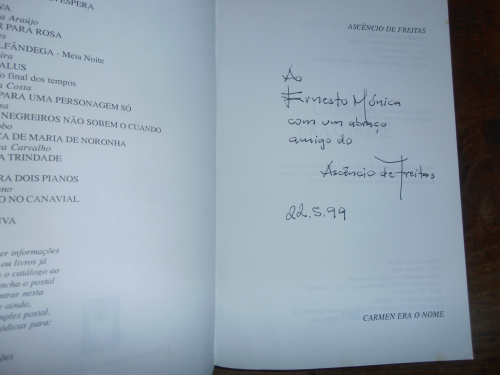 VÉSPERA
VA
a Araújo
R PARA ROSA
es
LFÂNDEGA - Meia Noite
eira
ALUS
o final dos tempos
a Costa
PARA UMA PERSONAGEM SÓ
sa
NEGREIROS NÃO SOBEM O CUANDO
obo
CA DE MARIA DE NORONHA
va Carvalho
A TRINDADE
RA DOIS PIANOS
ano
O NO CANAVIAL
IVA
er informações
ou livros já
a o catálogo ao
ncha o postal
parar nesta
e ainda,
mples postal.
ódicas para:
ções
ASCÊNCIO DE FREITAS
Ao
Ernesto Mónica
com um abraço
amigo do
Ascêncio de Freitas
22.5.99
CARMEN ERA O NOME